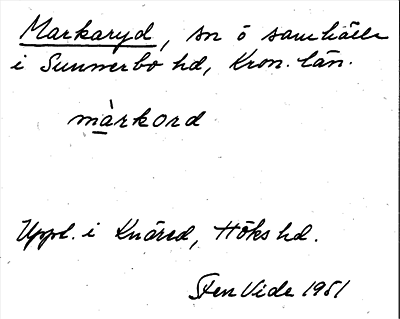 Markaryd, sn ö samhälle
i Sunnerbo hd, Kron. län.
màrkord
Uppl. i Knäred, Höks hd.
Sten Vide 1951